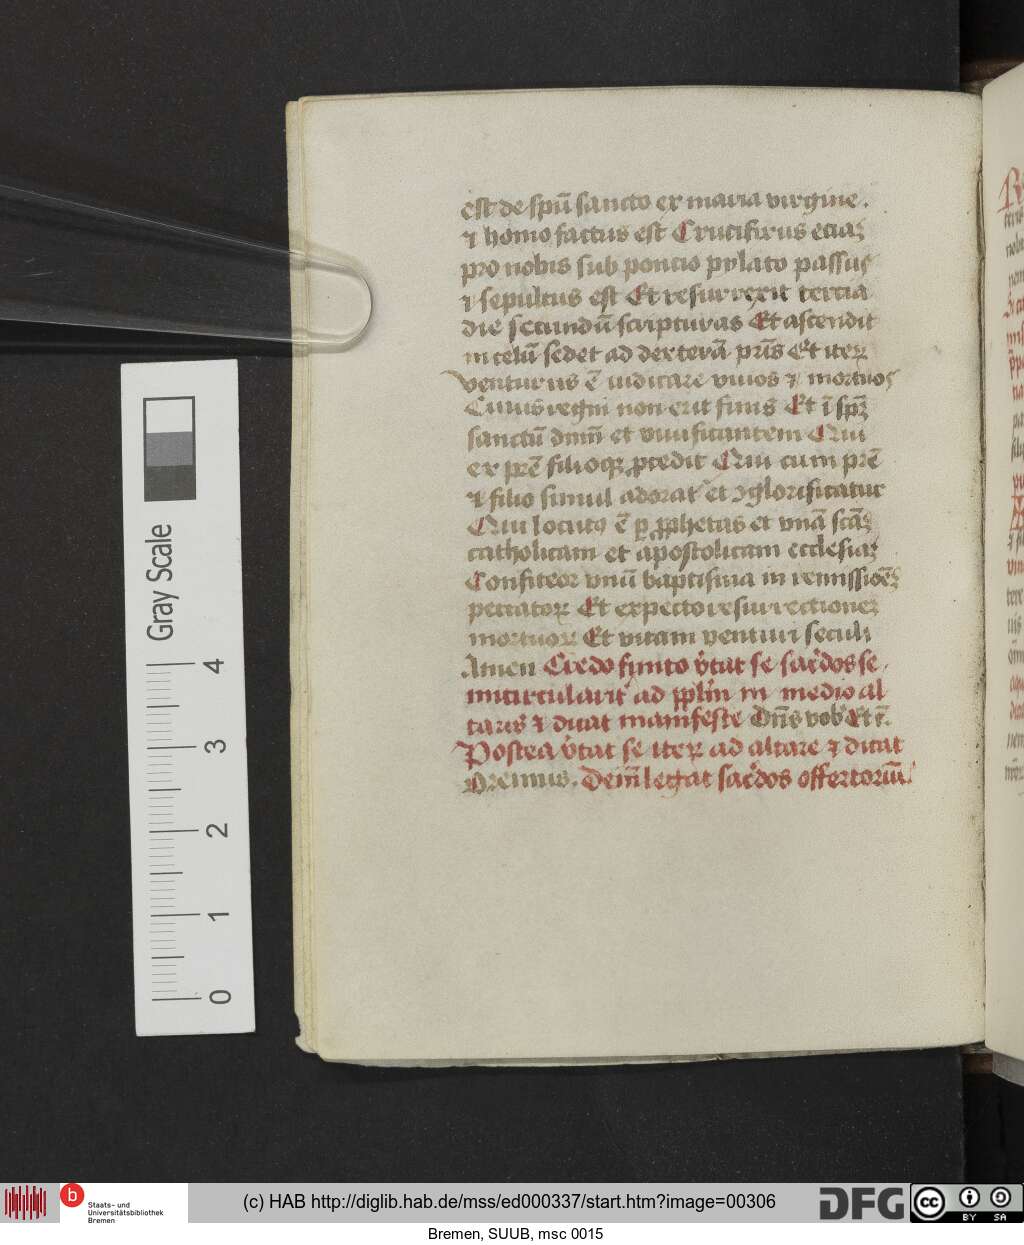 est de spū sancto ex maria virgine .
⁊ homo factus est Crucifixus eciaʒ
pro nobis sub poncio pylato passus
⁊ sepultus est Et resurrexit tercia
die secundū scripturas Et ascendit
in celū sedet ad dexterā pris̄ Et iteꝝ
venturus ē iudicare viuos ⁊ mortuos
Cuius regni non erit finis Et ī spm̄
sanctū dnm̄ et viuificantem Qui
ex prē filioqꝫ ꝓcedit Qui cum prē
⁊ filio simul adorat᷑ et ꝯglorificatur
Qui locutꝰ ē ꝑ ꝓphetas et vnā scāʒ
catholicam et apostolicam ecclesiaʒ
Confiteor vnū baptisma in remissioēʒ
peccatoꝝ Et expecto resurrectioneʒ
mortuoꝝ Et vitam venturi seculi
Amen Credo finito v̓tat se sac̓dos se
micirculariť ad pplm̄ in medio al
taris ⁊ dicat manifeste Dn̄s vob̾ Et c̄.
Postea v̓tat se iteꝝ ad altare ⁊ dicat
Oremus. Dein̄ legat sac̓dos offertoriū.
Gray Scale
4
3
2
1
0
b
Staats- und
Universitätsbibliothek
Bremen
(c) HAB http://diglib.hab.de/mss/ed000337/start.htm?image=00306
DFG
cc
BY SA
Bremen, SUUB, msc 0015